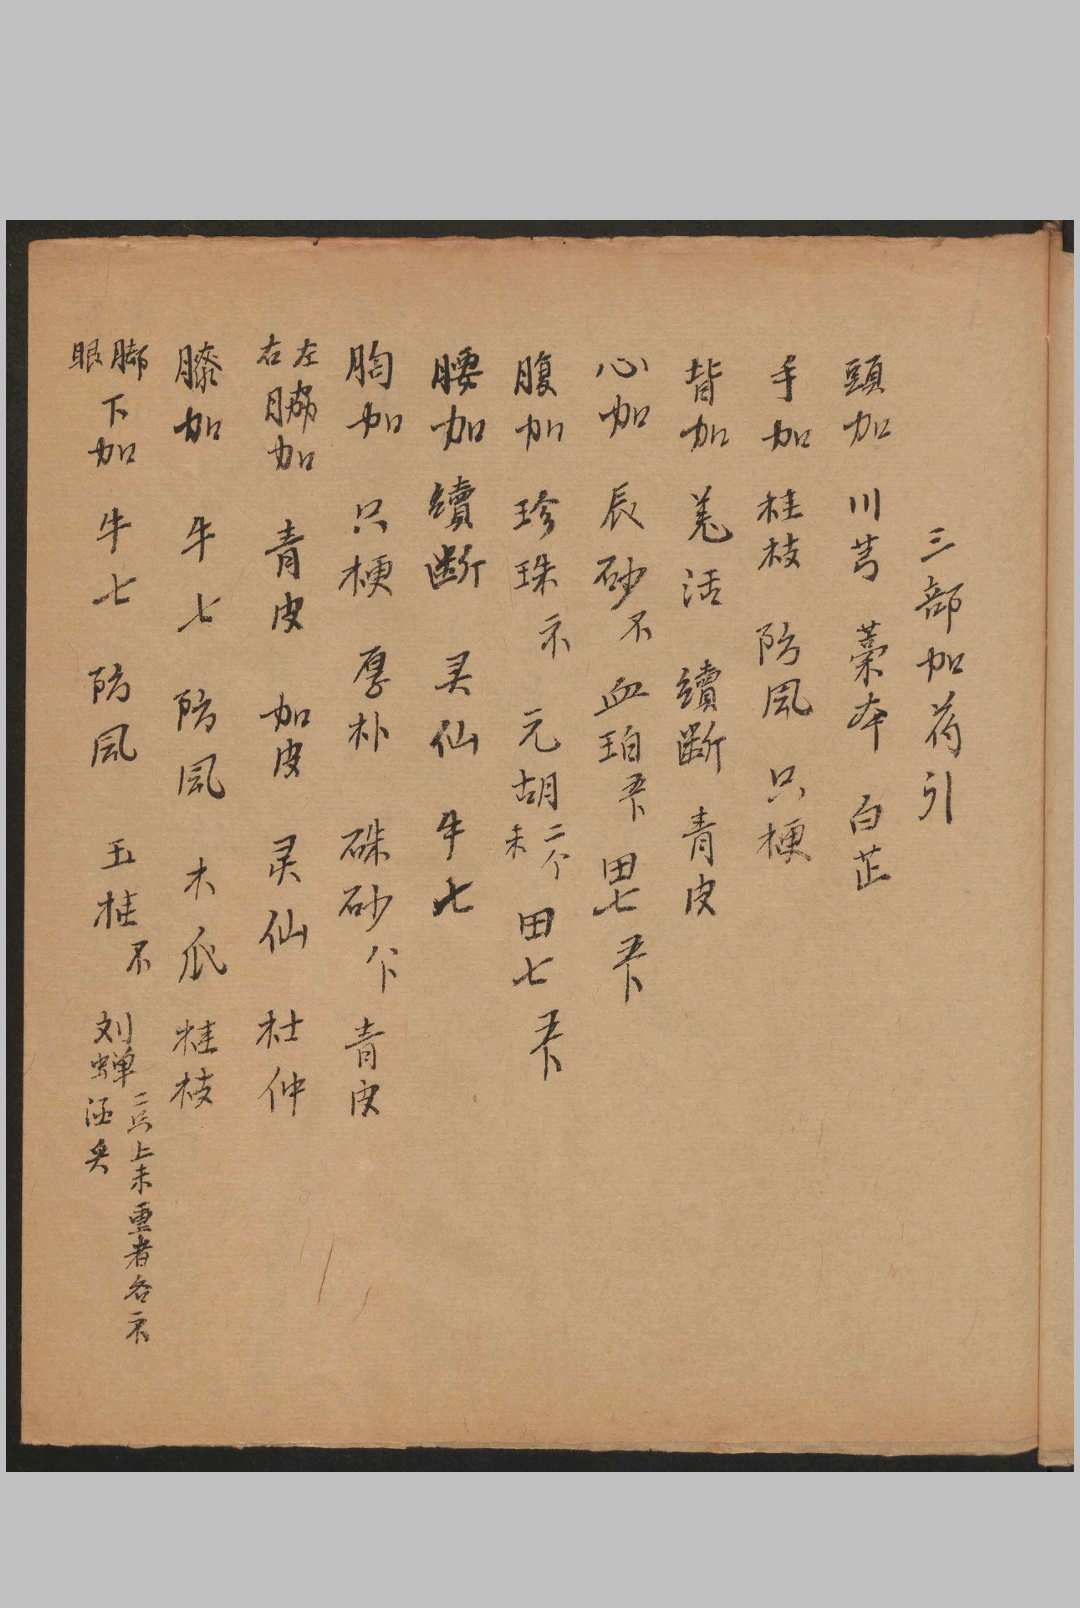 三部加药引
頭加 川芎 藁本 白芷
手加 桂枝 防风 只梗
背加 羌活 續断 青皮
心加 辰砂 血珀 田七
腹加 珍珠 元胡 二个 末 田七
腰加 續断 灵仙 牛七
胸加 只梗 厚朴 硃砂 青皮
左右胁加 青皮 加皮 灵仙 杜仲
膝加 牛七 防風 木瓜 桂枝
脚眼下加 牛七 防風 玉桂 刘蝉 二只 上末重者各